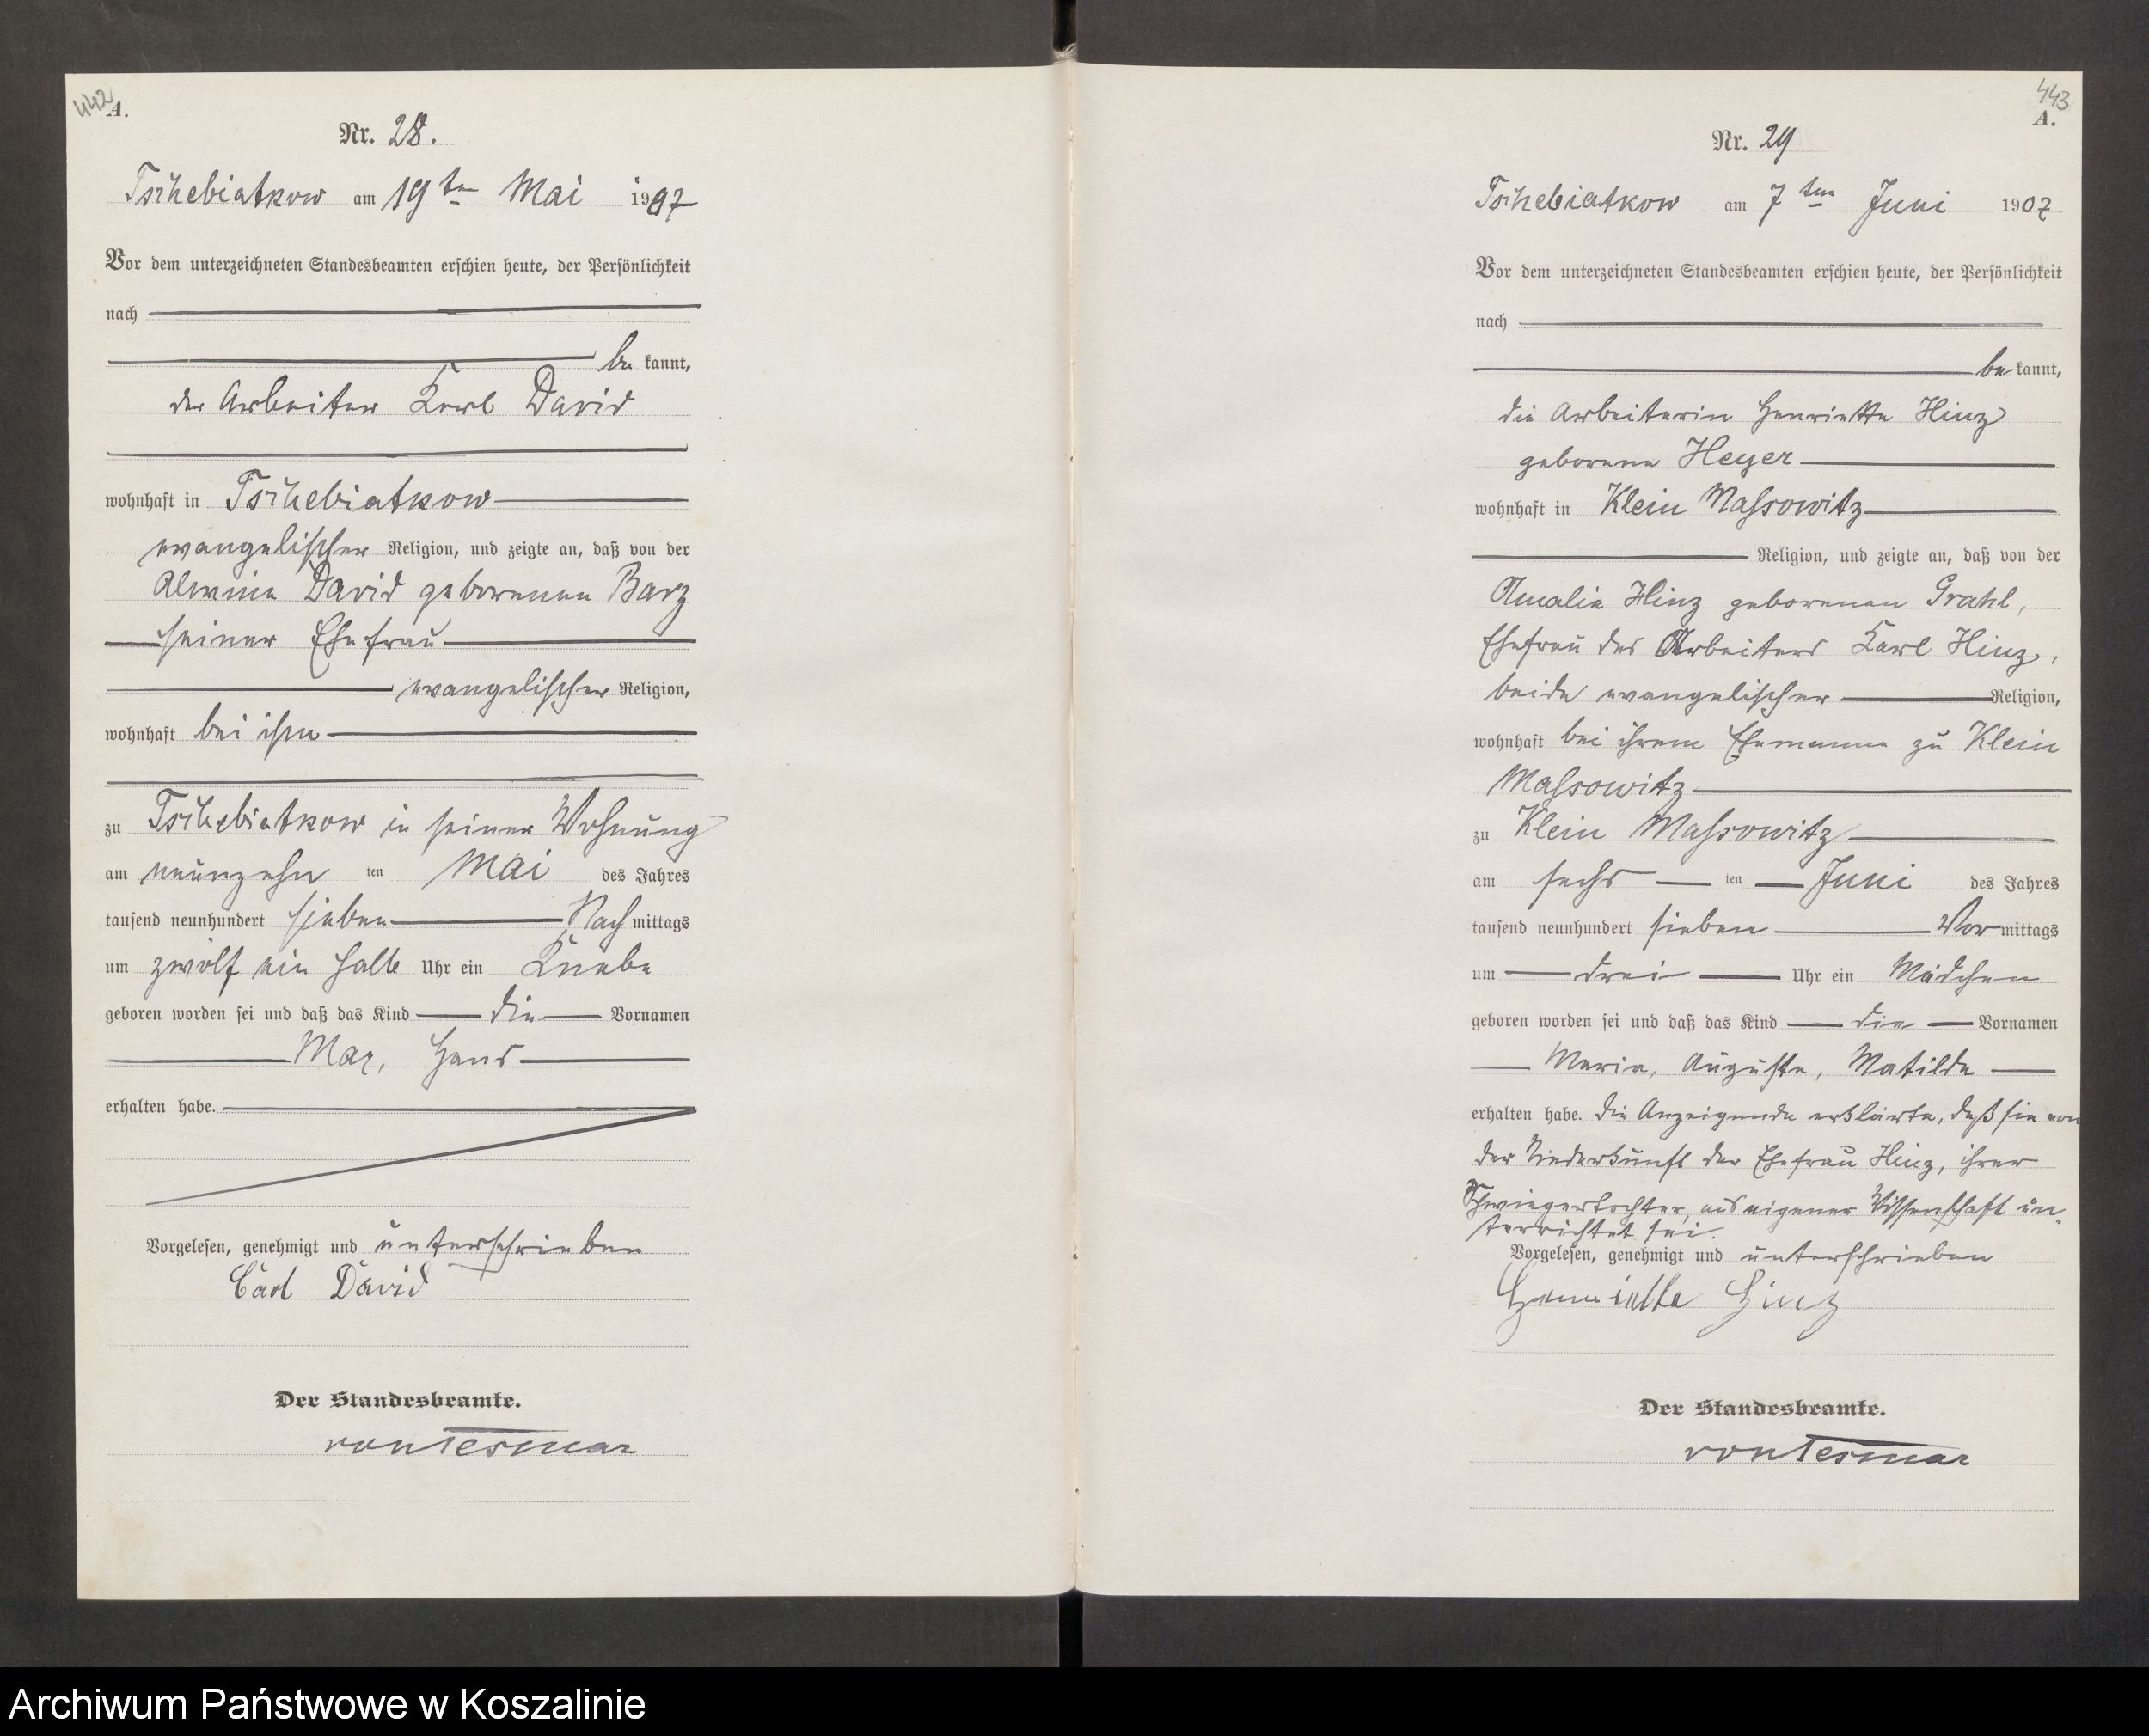 442
A.
Nr. 28.
Tschebiatkow am 19ten Mai 1907
Vor dem unterzeichneten Standesbeamten erschien heute, der Persönlichkeit
nach
be kannt,
der Arbeiter Karl David
wohnhaft in Tschebiatkow
evangelischer Religion, und zeigte an, daß von der
Alwine David geborenen Barz
seiner Ehefrau
evangelischer Religion,
wohnhaft bei ihm
zu Tschebiatkow in seiner Wohnung
am neunzehn ten Mai des Jahres
tausend neunhundert sieben Nach mittags
um zwölf ein halb Uhr ein Knabe
geboren worden sei und daß das Kind die Vornamen
Max, Hans
erhalten habe.
Vorgelesen, genehmigt und unterschrieben
Carl David
Der Standesbeamte.
von Tesmar
443
A.
Nr. 29
Tschebiatkow am 7ten Juni 1907
Vor dem unterzeichneten Standesbeamten erschien heute, der Persönlichkeit
nach
be kannt,
die Arbeiterin Henriette Hinz
geborene Heyer
wohnhaft in Klein Massowitz
Religion, und zeigte an, daß von der
Amalie Hinz geborenen Grahl,
Ehefrau des Arbeiters Karl Hinz,
beide evangelischer Religion,
wohnhaft bei ihrem Ehemanne zu Klein
Massowitz
zu Klein Massowitz
am sechs ten Juni des Jahres
tausend neunhundert sieben Vor mittags
um drei Uhr ein Mädchen
geboren worden sei und daß das Kind die Vornamen
Maria, Auguste, Matilde
erhalten habe. Die Anzeigende erklärte, daß sie von
der Niederkunft der Ehefrau Hinz, ihrer
Schwiegertochter, aus eigener Wissenschaft un-
terrichtet sei.
Vorgelesen, genehmigt und unterschrieben
Henriette Hinz
Der Standesbeamte.
von Tesmar
Archiwum Państwowe w Koszalinie